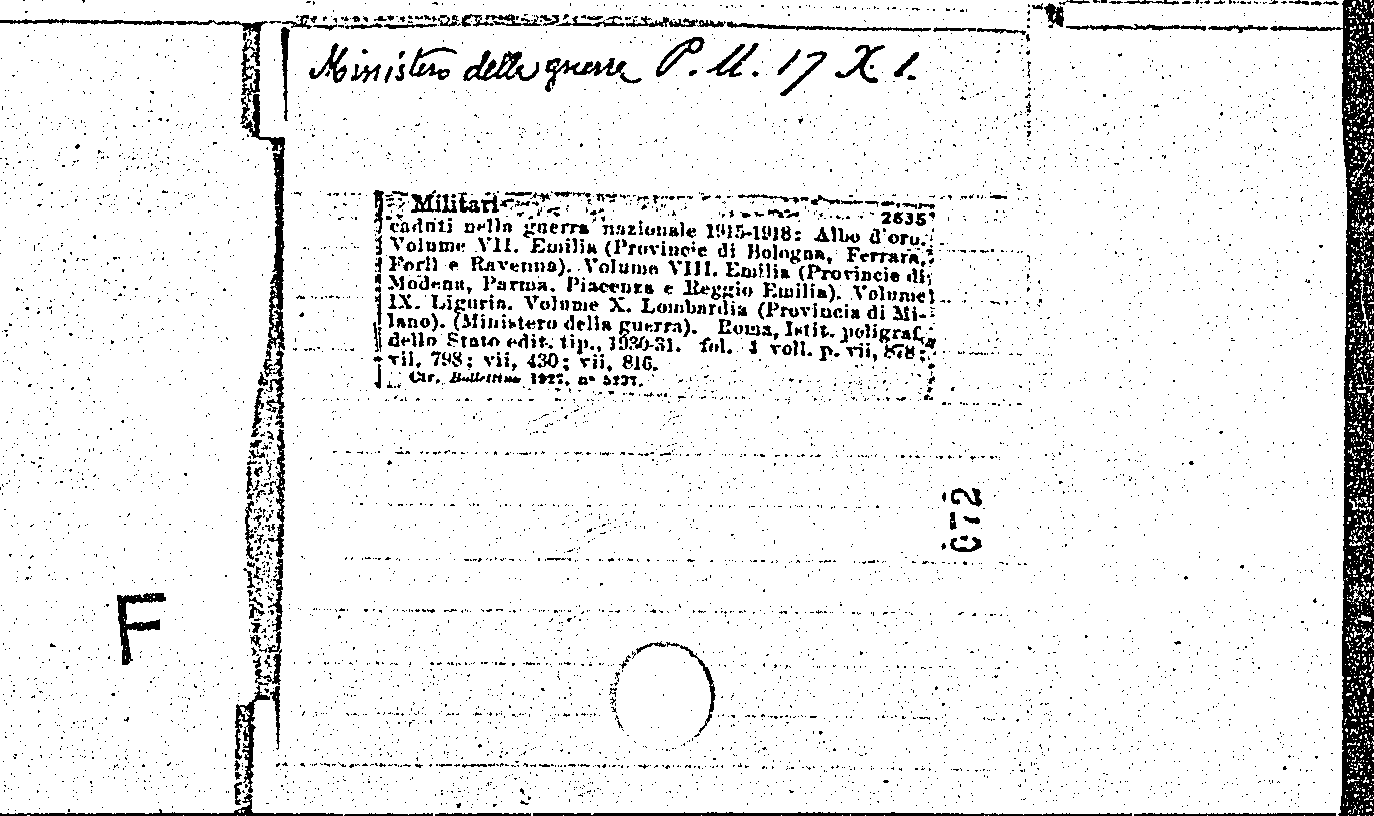 Ministero della guerra P. U. 17 X. 1.
Militari
2635
caduti nella guerra nazionale 1915-1918: Albo d'oro.
Volume VII. Emilia (Provincie di Bologna, Ferrara,
Forlì e Ravenna). Volume VIII. Emilia (Provincie di
Modena, Parma, Piacenza e Reggio Emilia). Volume
IX. Liguria. Volume X. Lombardia (Provincia di Mi-
lano). (Ministero della guerra). Roma, Istit. poligraf.
dello Stato edit. tip., 1930-31. fol. 4 voll. p. vii, 878;
vii, 798; vii, 430; vii, 816.
Cfr. Bollettino 1927, n° 5237.
072
F